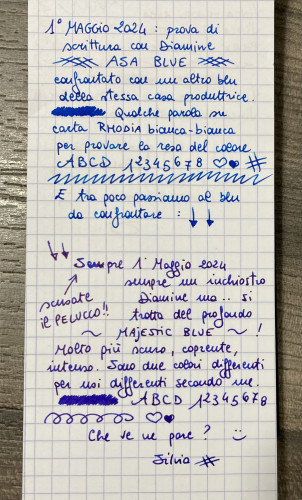 1° MAGGIO 2024 : prova di
scrittura con Diamine
ASA BLUE
confrontato con un altro blu
della stessa casa produttrice.
Qualche parola su
carta RHODIA bianca-bianca
per provare la resa del colore
ABCD 12345678 ♡♥ #
E tra poco passiamo al blu
da confrontare : ↓ ↓
↓↓ Sempre 1° Maggio 2024
sempre un inchiostro
Diamine ma .. si
tratta del profondo
~ MAJESTIC BLUE ~ !
scusate
il PELUCCO!!
Molto più scuro, coprente,
intenso. Sono due colori differenti
per usi differenti secondo me.
ABCD 12345678
♡♥
Che ve ne pare ? :)
Silvia #